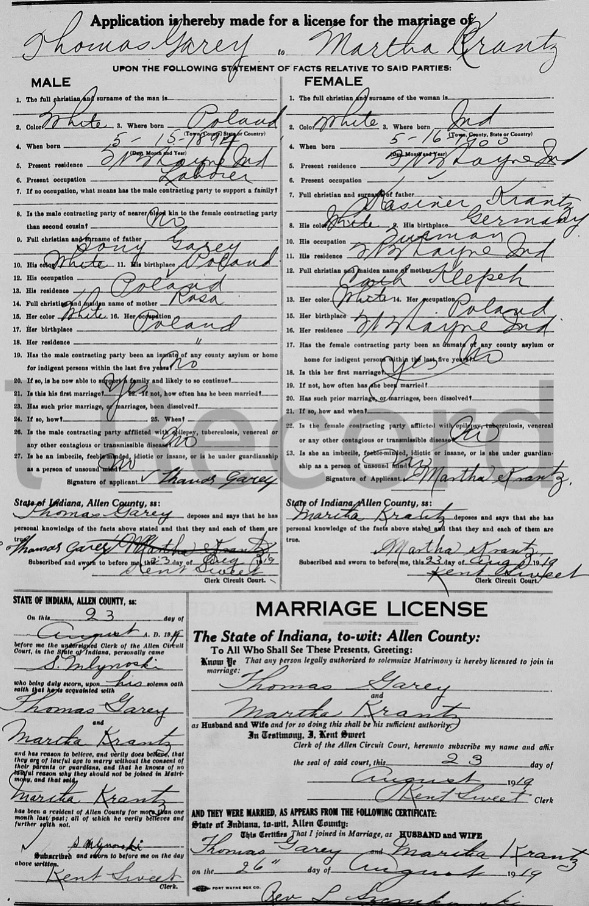 Application is hereby made for a license for the marriage of
Thomas Garey to Martha Krantz
UPON THE FOLLOWING STATEMENT OF FACTS RELATIVE TO SAID PARTIES:
MALE
1. The full christian and surname of the man is
2. Color White 3. Where born Poland
(Town, County, State or Country)
4. When born 5-15-1894
(Day, Month and Year)
5. Present residence Ft Wayne Ind
6. Present occupation Laborer
7. If no occupation, what means has the male contracting party to support a family?
8. Is the male contracting party of nearer blood kin to the female contracting party
than second cousin? No
9. Full christian and surname of father Tony Garey
10. His color White 11. His birthplace Poland
12. His occupation
13. His residence Poland
14. Full christian and maiden name of mother Rosa
15. Her color White 16. Her occupation
17. Her birthplace Poland
18. Her residence "
19. Has the male contracting party been an inmate of any county asylum or home
for indigent persons within the last five years? No
20. If so, is he now able to support a family and likely to so continue?
21. Is this his first marriage? Yes 22. If not, how often has he been married?
23. Has such prior marriage, or marriages, been dissolved?
24. If so, how? 25. When?
26. Is the male contracting party afflicted with epilepsy, tuberculosis, venereal or
any other contagious or transmissible disease? No
27. Is he an imbecile, feeble-minded, idiotic or insane, or is he under guardianship
as a person of unsound mind? No
Signature of applicant Thomas Garey
State of Indiana, Allen County, ss:
Thomas Garey deposes and says that he has
personal knowledge of the facts above stated and that they and each of them are
true.
Thomas Garey Martha Krantz
Subscribed and sworn to before me, this 23 day of Aug 1919
Kent Sweet
Clerk Circuit Court.
FEMALE
1. The full christian and surname of the woman is
2. Color White 3. Where born Ind
(Town, County, State or Country)
4. When born 5-16-1900
(Day, Month and Year)
5. Present residence Ft Wayne Ind
6. Present occupation
7. Full christian and surname of father Krantz
8. His color White 9. His birthplace Germany
10. His occupation
11. His residence Ft Wayne Ind
12. Full christian and maiden name of mother
13. Her color White 14. Her occupation
15. Her birthplace Poland
16. Her residence Ft Wayne Ind.
17. Has the female contracting party been an inmate of any county asylum or
home for indigent persons within the last five years? No
18. Is this her first marriage? Yes
19. If not, how often has she been married?
20. Has such prior marriage, or marriages, been dissolved?
21. If so, how and when?
22. Is the female contracting party afflicted with epilepsy, tuberculosis, venereal
or any other contagious or transmissible disease? No
23. Is she an imbecile, feeble-minded, idiotic or insane, or is she under guardian-
ship as a person of unsound mind? No
Signature of Applicant Martha Krantz.
State of Indiana, Allen County, ss:
Martha Krantz deposes and says that she has
personal knowledge of the facts above stated and that they and each of them are
true.
Martha Krantz
Subscribed and sworn to before me, this 23 day of Aug 1919
Kent Sweet
Clerk Circuit Court.
the record
STATE OF INDIANA, ALLEN COUNTY, ss:
On this 23 day of
August A. D. 19
before me the undersigned Clerk of the Allen Circuit
Court, in the State of Indiana, personally came
S. Mlynoski
who being duly sworn, upon his solemn oath
saith that he is acquainted with
Thomas Garey
and
Martha Krantz
and has reason to believe, and verily does believe, that
they are of lawful age to marry without the consent of
their parents or guardians, and that he knows of no
lawful reason why they should not be joined in Matri-
mony, and that said
Martha Krantz
has been a resident of Allen County for more than one
month last past; all of which he verily believes and
further saith not.
S Mlynoski
Subscribed and sworn to before me on the day
above written.
Kent Sweet
Clerk.
MARRIAGE LICENSE
The State of Indiana, to-wit: Allen County:
To All Who Shall See These Presents, Greeting:
Know Ye That any person legally authorized to solemnize Matrimony is hereby licensed to join in
marriage:
Thomas Garey
and
Martha Krantz
as Husband and Wife and for so doing this shall be his sufficient authority.
In Testimony, I, Kent Sweet
Clerk of the Allen Circuit Court, hereunto subscribe my name and affix
the seal of said court, this 23 day of
August 1919
Kent Sweet Clerk
AND THEY WERE MARRIED, AS APPEARS FROM THE FOLLOWING CERTIFICATE:
State of Indiana, to-wit, Allen County:
This Certifies That I joined in Marriage, as HUSBAND and WIFE
Thomas Garey and Martha Krantz
on the 26" day of August 1919
FORT WAYNE BOX CO.
Rev L